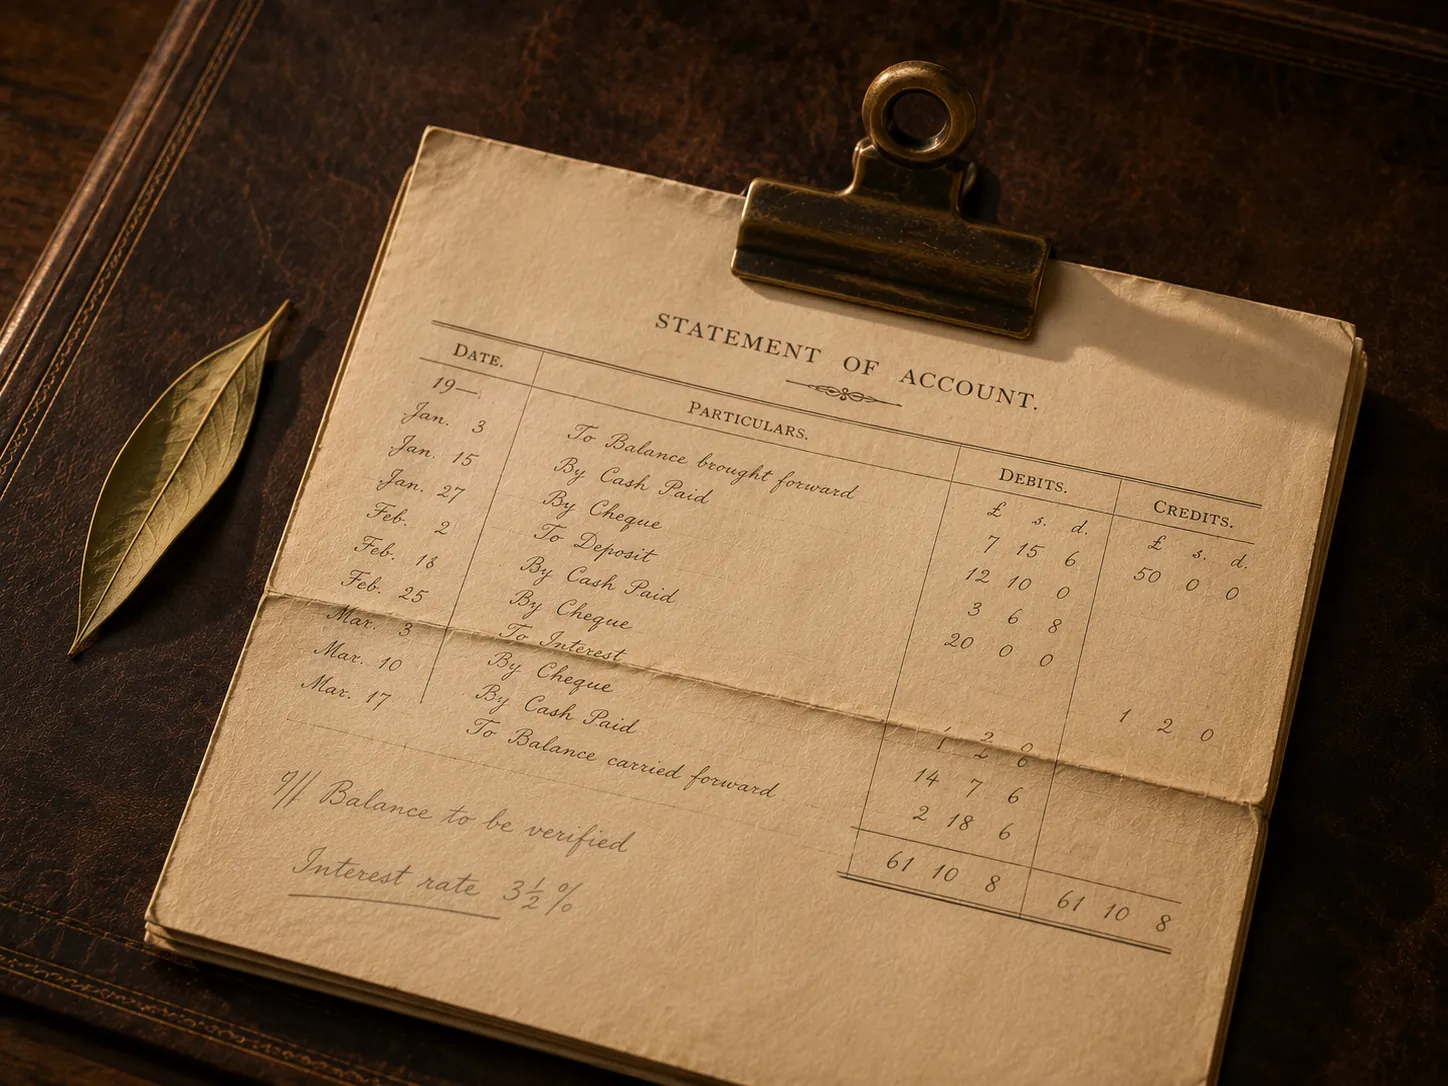 STATEMENT OF ACCOUNT.
DATE. PARTICULARS. DEBITS. CREDITS.
19— £ s. d. £ s. d.
Jan. 3 To Balance brought forward 7 15 6 50 0 0
Jan. 15 By Cash Paid 12 10 0
Jan. 27 By Cheque 3 6 8
Feb. 2 To Deposit 20 0 0
Feb. 18 By Cash Paid
Feb. 25 By Cheque 1 2 0
Mar. 3 To Interest 1 2 0
Mar. 10 By Cheque 14 7 6
Mar. 17 By Cash Paid 2 18 6
To Balance carried forward
61 10 8 61 10 8
Balance to be verified
Interest rate 3½ %